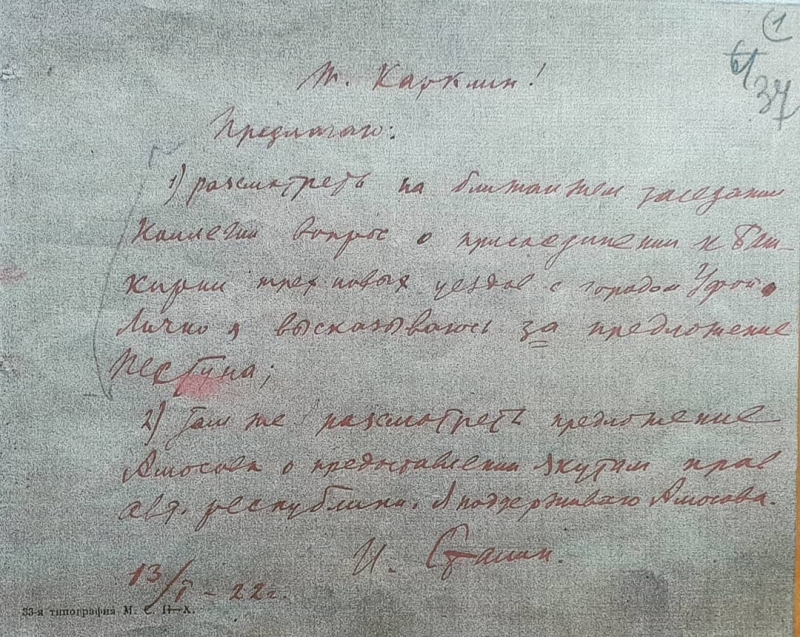 1
61
37
Т. Карклин!
Предлагаю:
1) рассмотреть на ближайшем заседании
Коллегии вопрос о присоединении к Баш-
кирии трех новых уездов с городом Уфой.
Лично я высказываюсь за предложение
2) Там же рассмотреть предложение
Амосова о предоставлении якутам прав
авт. республики. Я поддерживаю Амосова.
И. Сталин.
13/I - 22 г.
33-я типография М. С. Н. Х.